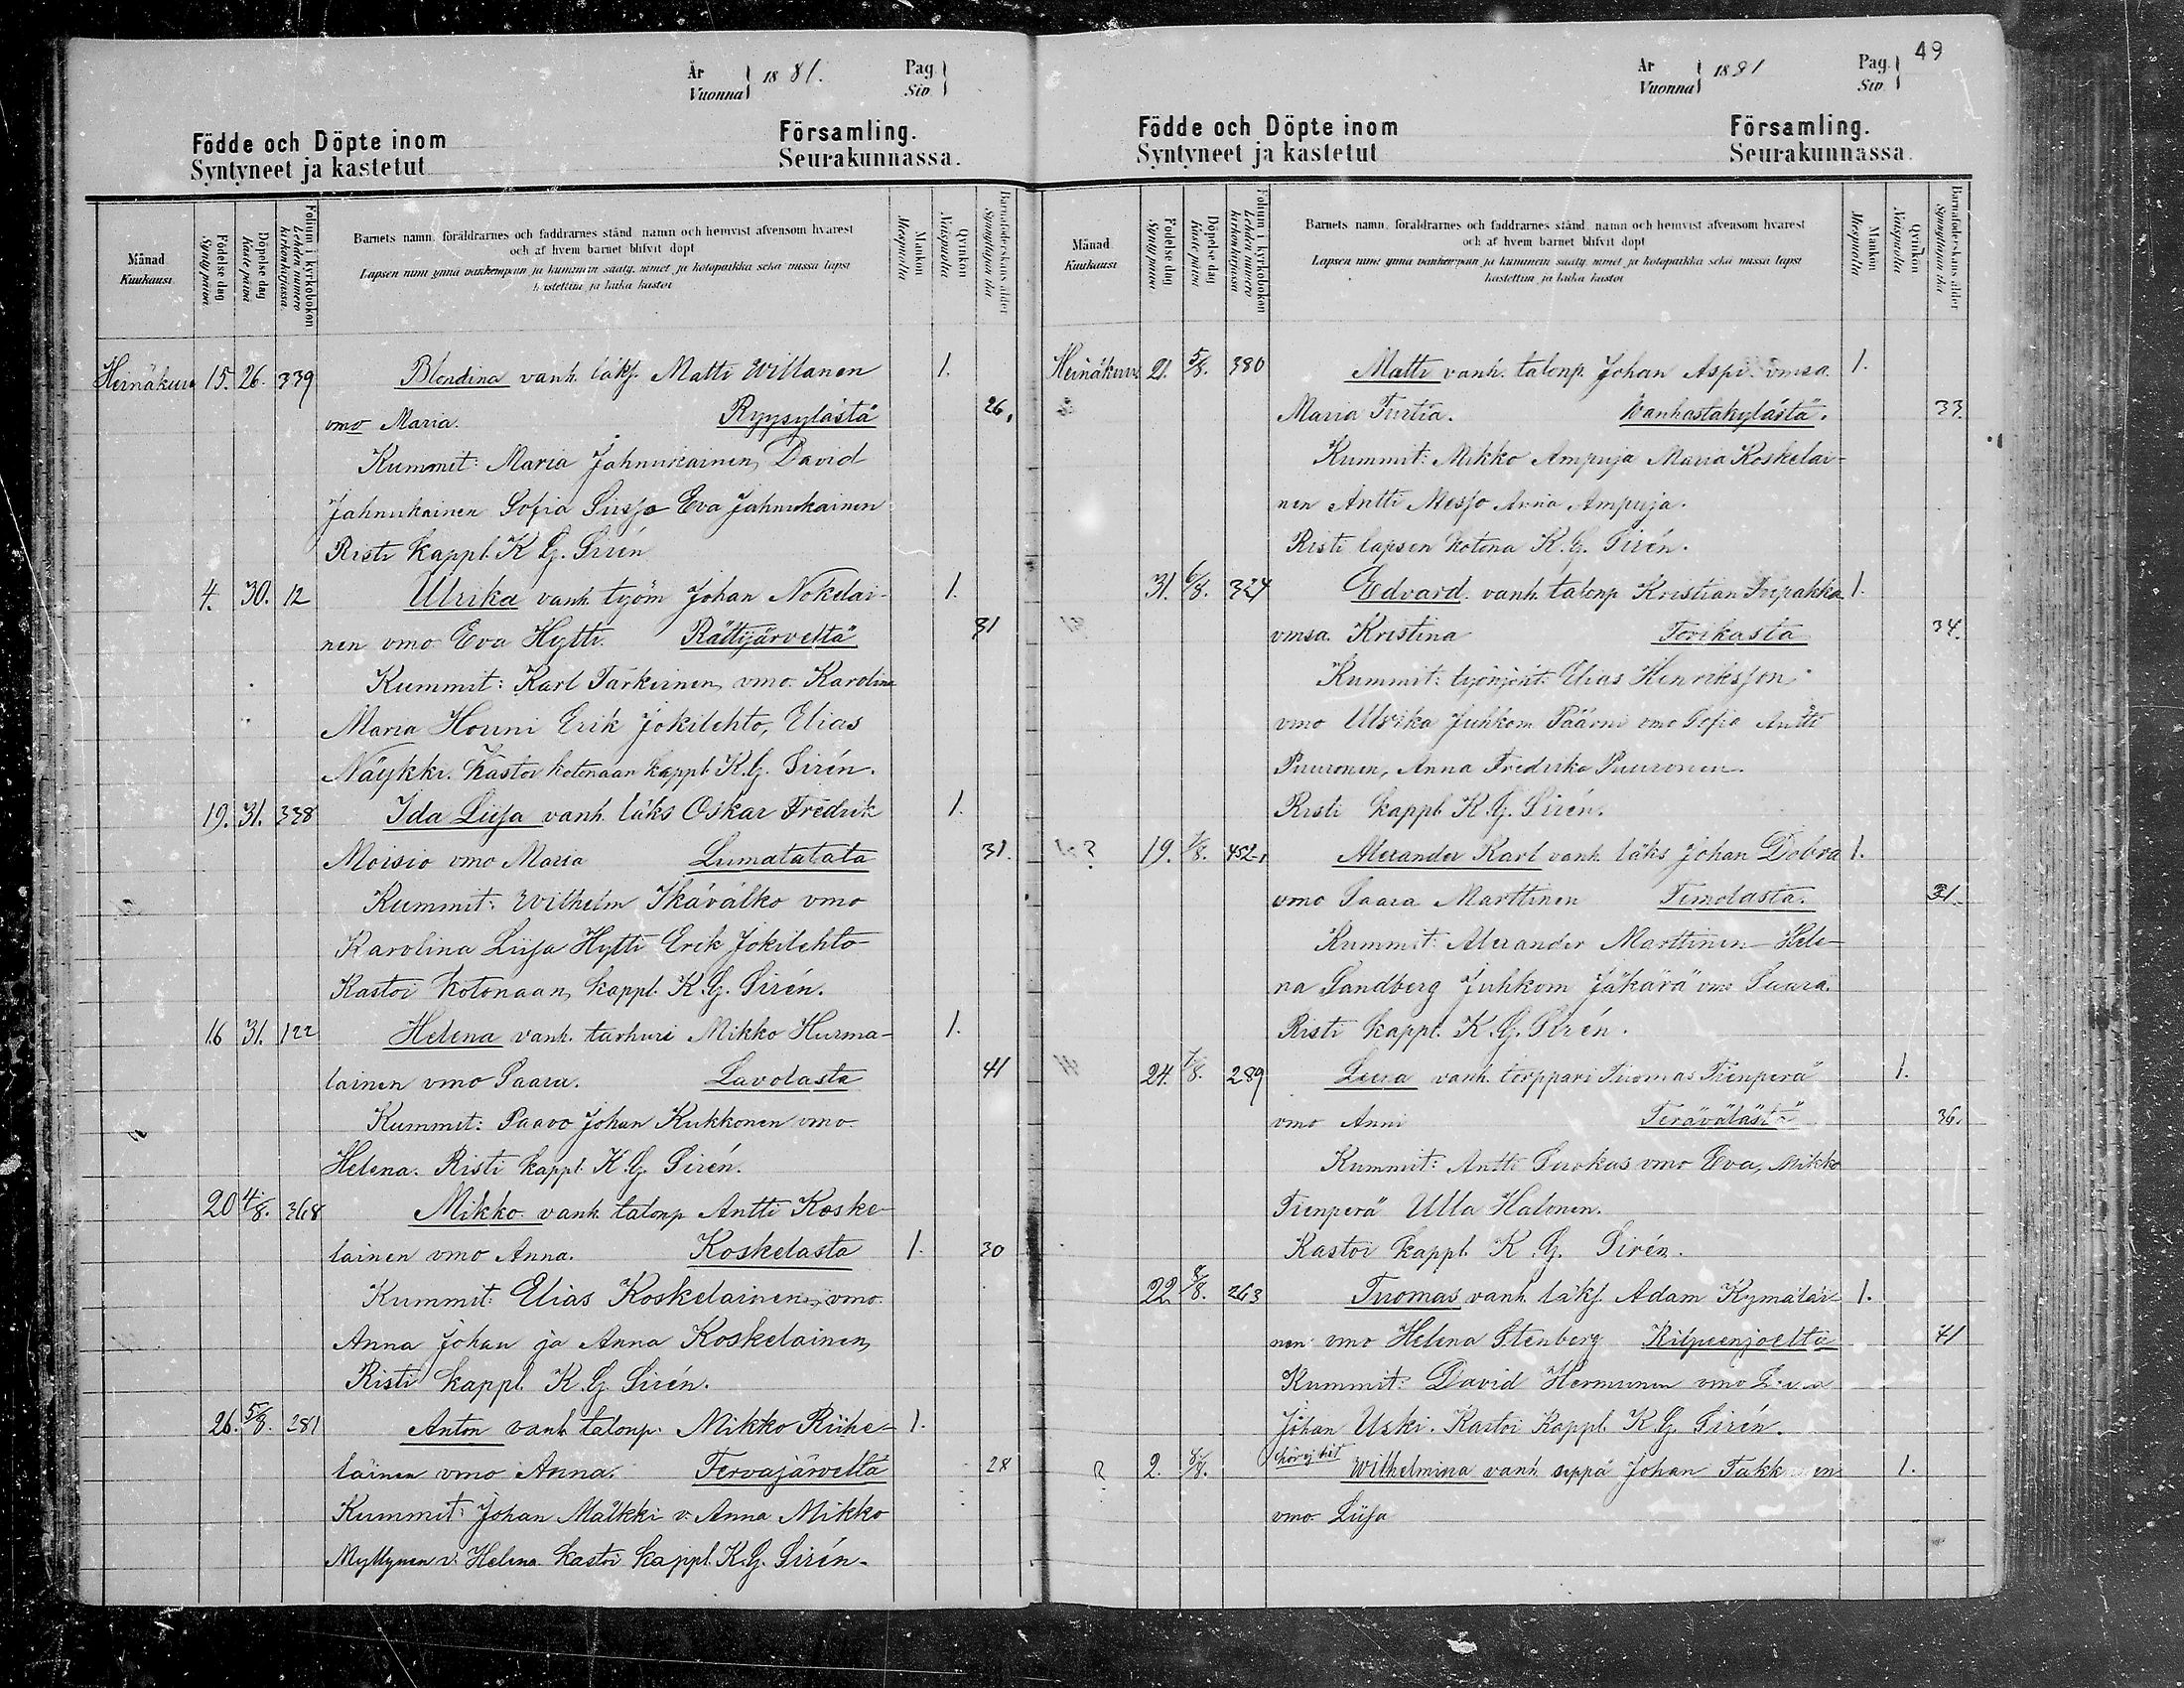 År Vuonna 1881. Pag. Siv.
Födde och Döpte inom Församling.
Syntyneet ja kastetut Seurakunnassa.
Månad Kuukausi
Födelse dag Synty päivä
Döpelse dag Kaste päivä
Folium i kyrkoboken Lehden numero kirkonkirjassa.
Barnets namn, föräldrarnes och faddrarnes stånd, namn och hemvist äfvensom hvarest
och af hvem barnet blifvit döpt
Lapsen nimi ynnä vanhempain ja kummin sääty, nimet ja kotopaikka sekä missä lapsi
kastettiin ja kuka kastoi
Mankön Miespuolta
Qvinkön Naispuolta
Barnaföderskans ålder Synnyttäjän ikä
Heinäkuu 15. 26. 339 Blondina vanh. läks. Matti Willanen 1.
vmo Maria. Ryysylästä 26.
Kummit: Maria Jahnukainen, David
Jahnukainen Sofia Susja Eva Jahnukainen
Risti kappl. K G. Sirén
4. 30. 12 Ulrika vanh. työm Johan Nokelai- 1.
nen vmo Eva Hytti. Rättijärveltä 31
Kummit: Karl Tarkiinen, vmo. Karolina
Maria Houni Erik Jokilehto, Elias
Näykki. Kastoi kotonaan kappl. K.G. Sirén.
19. 31. 338 Ida Liisa vanh. läks Oskar Fredrik 1.
Moisio vmo Maria Lumatalata 31.
Kummit: Wilhelm Ikävälko vmo
Karolina Liisa Hytti Erik Jokilehto
Kastoi Kotonaan, kappl. K.G. Sirén.
16 31. 122 Helena vanh. tarhuri Mikko Hurma- 1.
lainen vmo Saara. Lavolasta 41
Kummit: Paavo Johan Kukkonen vmo
Helena. Risti kappl. K.G. Sirén.
20 4/8. 368 Mikko vanh. talonp Antti Koske-
lainen vmo Anna. Koskelasta 1. 30
Kummit: Elias Koskelainen, vmo.
Anna Johan ja Anna Koskelainen,
Risti kappl. K.G. Sirén.
26. 5/8. 281 Anton vanh talonp. Mikko Riihe- 1.
läinen vmo Anna. Tervajärveltä 28
Kummit: Johan Mälkki v. Anna Mikko
Myllynen v. Helena. Kastoi kappl. K.G. Sirén.
49
År Vuonna 1881 Pag. Siv.
Födde och Döpte inom Församling.
Syntyneet ja kastetut Seurakunnassa.
Månad Kuukausi
Födelse dag Synty päivä
Döpelse dag Kaste päivä
Folium i kyrkoboken Lehden numero kirkonkirjassa
Barnets namn, föräldrarnes och faddrarnes stånd, namn och hemvist äfvensom hvarest
och af hvem barnet blifvit döpt
Lapsen nimi ynnä vanhempain ja kummein sääty, nimet ja kotopaikka sekä missä lapsi
kastettiin ja kuka kastoi
Mankön Miespuolta
Qvinkön Naispuolta
Barnaföderskans ålder Synnyttäjän ikä
Heinäkuu 21. 5/8. 380 Matti vanh. talonp. Johan Aspi vmsa. 1.
Maria Turtia. Wanhastakylästä. 33.
Kummit: Mikko Ampuja Maria Koskelai-
nen Antti Messo Anna Ampuja.
Risti lapsen kotona K.G. Sirén.
31. 6/8. 324 Edvard vanh. talonp Kristian Pripakka 1.
vmsa. Kristina Torikasta 34.
Kummit: työnjoht. Elias Henriksson
vmo Ulrika Juhkom Päärni vmo Sofia Antti
Puuronen, Anna Fredrika Puuronen.
Risti kappl. K.G. Sirén.
? 19. 7/8. 452 Alexander Karl vanh. läks Johan Dobra 1.
vmo Saara Marttinen Timolasta. 31.
Kummit: Alexander Marttinen Hele-
na Sandberg Juhkom Jäkärä vmo Saara.
Risti kappl. K.G. Sirén.
24. 7/8. 289 Liisa vanh. torppari Tuomas Tienperä 1.
vmo Anni Terävälästä 36.
Kummit: Antti Suokas vmo Eva, Mikko
Tienperä Ulla Halonen.
Kastoi kappl. K.G. Sirén.
22. 8/8. 263 Tuomas vanh. läks. Adam Kymäläi- 1.
nen vmo Helena Stenberg Kilpeenjoelta 41
Kummit: David Hermunen vmo
Johan Uski. Kastoi Kappl. K.G. Sirén.
? 2. 8/8. hör ej hit Wilhelmina vanh seppä Johan Takkinen 1.
vmo Liisa